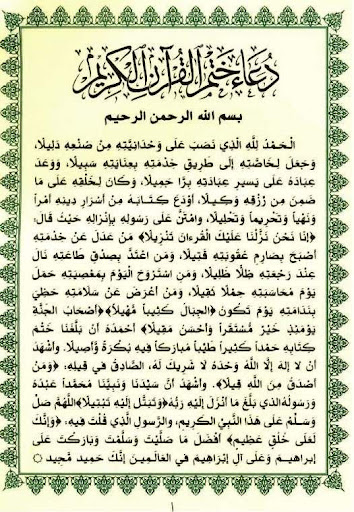 دُعَاءُ خَتْمِ الْقُرْآنِ الْكَرِيْمِ
بسم الله الرحمن الرحيم
الْحَمْدُ لِلَّهِ الَّذِي نَصَبَ عَلَى وَحْدَانِيَّتِهِ مِنْ صُنْعِهِ دَلِيلًا،
وَجَعَلَ لِخَاصَّتِهِ إِلَى طَرِيقِ خِدْمَتِهِ بِعِنَايَتِهِ سَبِيلًا، وَوَعَدَ
عِبَادَهُ عَلَى يَسِيرِ عِبَادَتِهِ بِرًّا جَمِيلًا، وَكَانَ لِخَلْقِهِ عَلَى مَا
ضَمِنَ مِنْ رِزْقِهِ وَكِيلًا، أَوْدَعَ كِتَابَهُ مِنْ أَسْرَارِ دِينِهِ أَمْرًا
وَنَهْيًا وَتَحْرِيمًا وَتَحْلِيلًا، وَامْتَنَّ عَلَى رَسُولِهِ بِإِنْزَالِهِ حَيْثُ قَالَ:
﴿إِنَّا نَحْنُ نَزَّلْنَا عَلَيْكَ الْقُرْءَانَ تَنْزِيلًا﴾ مَنْ عَدَلَ عَنْ خِدْمَتِهِ
أَصْبَحَ بِصَارِمِ عُقُوبَتِهِ قَتِيلًا، وَمَنِ اعْتَدَّ بِصِدْقِ طَاعَتِهِ نَالَ
عِنْدَ رَجْعَتِهِ ظِلًّا ظَلِيلًا، وَمَنِ اسْتَرْوَحَ الْيَوْمَ بِمَعْصِيَتِهِ حَمَلَ
يَوْمَ مُحَاسَبَتِهِ حِمْلًا ثَقِيلًا، وَمَنْ أَعْرَضَ عَنْ سَلَامَتِهِ حَظِيَ
بِنَدَامَتِهِ يَوْمَ تَكُونُ ﴿الْجِبَالُ كَثِيبًا مَهِيلًا﴾ ﴿أَصْحَابُ الْجَنَّةِ
يَوْمَئِذٍ خَيْرٌ مُسْتَقَرًّا وَأَحْسَنُ مَقِيلًا﴾ أَحْمَدُهُ أَنْ بَلَّغَنَا خَتْمَ
كِتَابِهِ حَمْدًا كَثِيرًا طَيِّبًا مُبَارَكًا فِيهِ بُكْرَةً وَأَصِيلًا. وَأَشْهَدُ
أَنْ لَا إِلَهَ إِلَّا اللَّهُ وَحْدَهُ لَا شَرِيكَ لَهُ، الصَّادِقُ فِي قِيلِهِ: ﴿وَمَنْ
أَصْدَقُ مِنَ اللَّهِ قِيلًا﴾. وَأَشْهَدُ أَنَّ سَيِّدَنَا وَنَبِيَّنَا مُحَمَّدًا عَبْدُهُ
وَرَسُولُهُ الَّذِي بَلَّغَ مَا أَنْزَلَ إِلَيْهِ رَبُّهُ ﴿وَتَبَتَّلْ إِلَيْهِ تَبْتِيلًا﴾ اللَّهُمَّ صَلِّ
وَسَلِّمْ عَلَى هَذَا النَّبِيِّ الْكَرِيمِ، وَالرَّسُولِ الَّذِي قُلْتَ فِيهِ: ﴿وَإِنَّكَ
لَعَلَى خُلُقٍ عَظِيمٍ﴾ أَفْضَلَ مَا صَلَّيْتَ وَسَلَّمْتَ وَبَارَكْتَ عَلَى
إِبْرَاهِيمَ وَعَلَى آلِ إِبْرَاهِيمَ فِي الْعَالَمِينَ إِنَّكَ حَمِيدٌ مَجِيدٌ
١